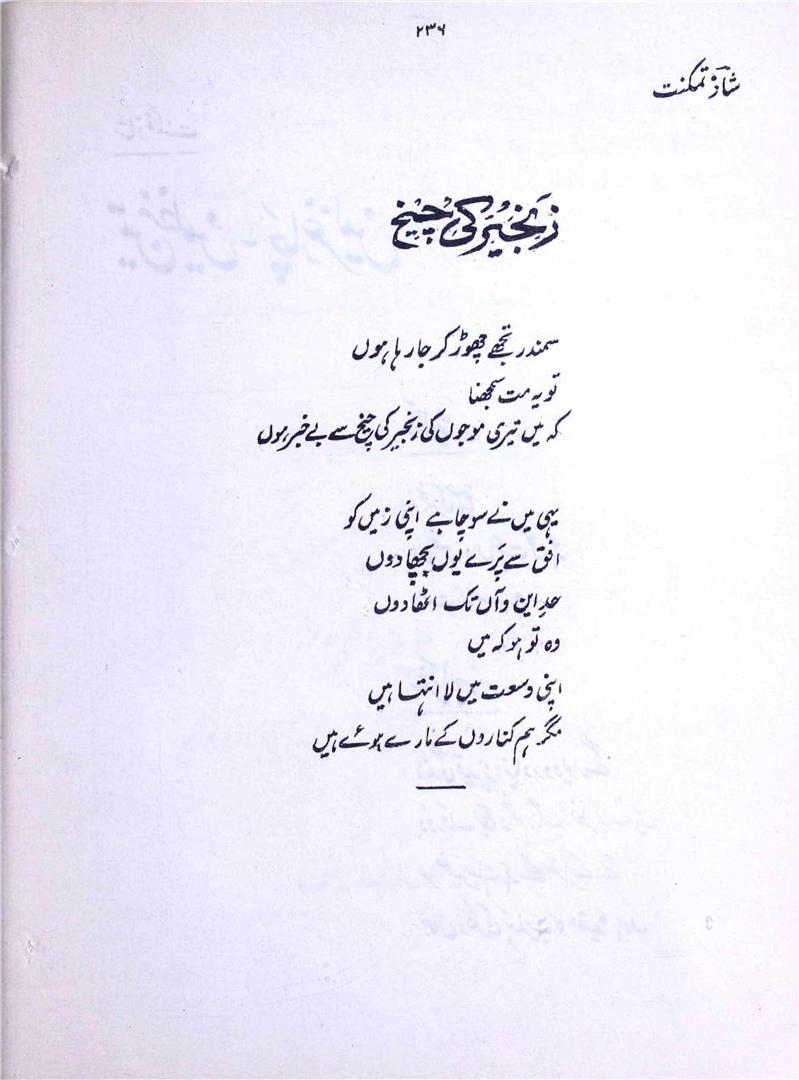 ۲۳۶
شاذ تمکنت
زنجیر کی چیخ
سمندر تجھے چھوڑ کر جا رہا ہوں
تو یہ مت سمجھنا
کہ میں تیری موجوں کی زنجیر کی چیخ سے بے خبر ہوں
یہی میں نے سوچا ہے اپنی زمیں کو
افق سے پَرے یوں بچھا دوں
حدِ این و آں تک اٹھا دوں
وہ تو ہو کہ میں
اپنی وسعت میں لا انتہا ہیں
مگر ہم کناروں کے مارے ہوئے ہیں